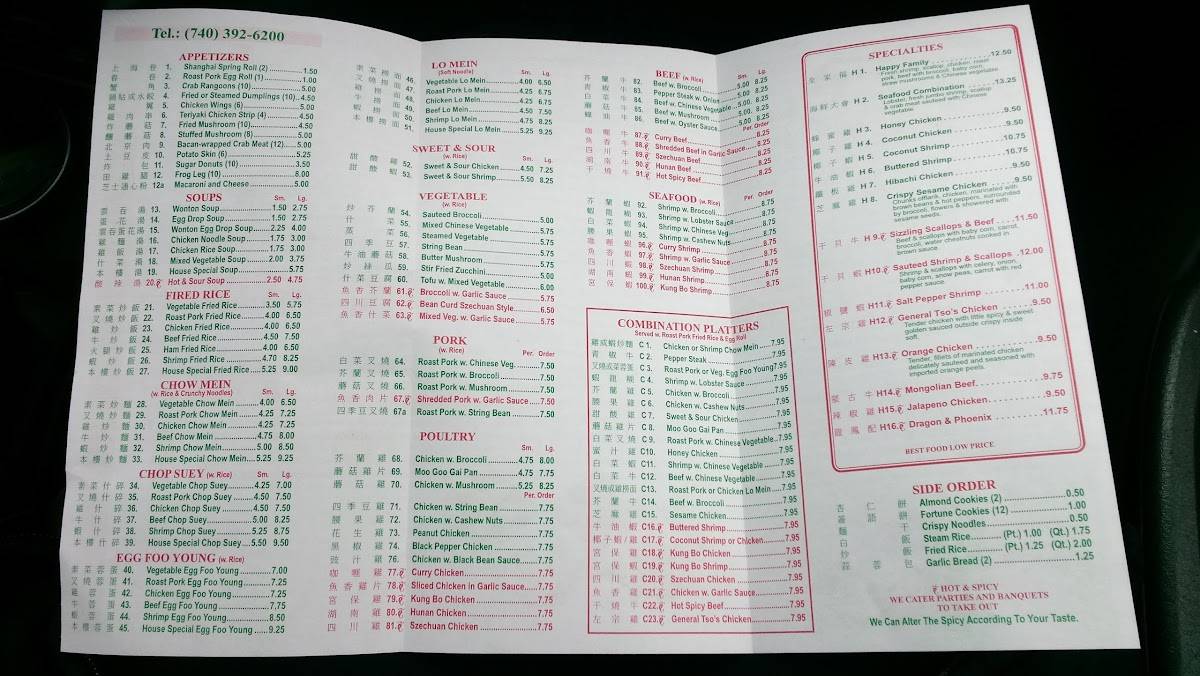 Tel.: (740) 392-6200
APPETIZERS
上海卷 1. Shanghai Spring Roll (2) 1.50
春卷 2. Roast Pork Egg Roll (1) 1.00
蟹角 3. Crab Rangoons (10) 5.00
鍋貼或水餃 4. Fried or Steamed Dumplings (10) 4.50
雞翼 5. Chicken Wings (6) 5.00
雞肉串 6. Teriyaki Chicken Strip (4) 4.50
炸蘑菇 7. Fried Mushroom (10) 4.50
釀蘑菇 8. Stuffed Mushroom (8) 5.00
北京肉 9. Bacan-wrapped Crab Meat (12) 5.00
土豆皮 10. Potato Skin (6) 5.25
炸包 11. Sugar Donuts (10) 3.50
田雞腿 12. Frog Leg (10) 8.00
芝士通心粉 12a Macaroni and Cheese 5.00
SOUPS Sm. Lg.
雲吞湯 13. Wonton Soup 1.50 2.75
蛋花湯 14. Egg Drop Soup 1.50 2.75
雲吞蛋花湯 15. Wonton Egg Drop Soup 2.25 4.00
雞麵湯 16. Chicken Noodle Soup 1.75 3.00
雞飯湯 17. Chicken Rice Soup 1.75 3.00
什菜湯 18. Mixed Vegetable Soup 2.00 3.75
本樓湯 19. House Special Soup 5.75
酸辣湯 20. Hot & Sour Soup 2.50 4.75
FRIED RICE Sm. Lg.
素菜炒飯 21. Vegetable Fried Rice 3.50 5.75
叉燒炒飯 22. Roast Pork Fried Rice 4.00 6.50
雞炒飯 23. Chicken Fried Rice 4.00 6.50
牛炒飯 24. Beef Fried Rice 4.50 7.50
火腿炒飯 25. Ham Fried Rice 4.00 6.50
蝦炒飯 26. Shrimp Fried Rice 4.70 8.25
本樓炒飯 27. House Special Fried Rice 5.25 9.00
CHOW MEIN
(w. Rice & Crunchy Noodles) Sm. Lg.
素菜炒麵 28. Vegetable Chow Mein 4.00 6.50
叉燒炒麵 29. Roast Pork Chow Mein 4.25 7.25
雞炒麵 30. Chicken Chow Mein 4.25 7.25
牛炒麵 31. Beef Chow Mein 4.75 8.00
蝦炒麵 32. Shrimp Chow Mein 5.00 8.50
本樓炒麵 33. House Special Chow Mein 5.25 9.25
CHOP SUEY (w. Rice) Sm. Lg.
素菜什碎 34. Vegetable Chop Suey 4.25 7.00
叉燒什碎 35. Roast Pork Chop Suey 4.50 7.50
雞什碎 36. Chicken Chop Suey 4.50 7.50
牛什碎 37. Beef Chop Suey 5.00 8.25
蝦什碎 38. Shrimp Chop Suey 5.25 8.75
本樓什碎 39. House Special Chop Suey 5.50 9.50
EGG FOO YOUNG (w. Rice)
素菜蓉蛋 40. Vegetable Egg Foo Young 7.00
叉燒蓉蛋 41. Roast Pork Egg Foo Young 7.25
雞蓉蛋 42. Chicken Egg Foo Young 7.25
牛蓉蛋 43. Beef Egg Foo Young 7.75
蝦蓉蛋 44. Shrimp Egg Foo Young 8.50
本樓蓉蛋 45. House Special Egg Foo Young 9.25
LO MEIN
(Soft Noodle) Sm. Lg.
素菜撈面 46. Vegetable Lo Mein 4.00 6.50
叉燒撈面 47. Roast Pork Lo Mein 4.25 6.75
雞撈面 48. Chicken Lo Mein 4.25 6.75
牛撈面 49. Beef Lo Mein 4.50 7.50
蝦撈面 50. Shrimp Lo Mein 4.75 8.25
本樓撈面 51. House Special Lo Mein 5.25 9.25
SWEET & SOUR
(w. Rice) Sm. Lg.
甜酸雞 52. Sweet & Sour Chicken 4.50 7.25
甜酸蝦 53. Sweet & Sour Shrimp 5.50 8.25
VEGETABLE
(w. Rice)
炒芥蘭 54. Sauteed Broccoli 5.00
什菜 55. Mixed Chinese Vegetable 5.75
蒸菜 56. Steamed Vegetable 5.75
四季豆 57. String Bean 5.75
牛油蘑菇 58. Butter Mushroom 5.75
炒絲瓜 59. Stir Fried Zucchini 5.00
什菜豆腐 60. Tofu w. Mixed Vegetable 6.00
魚香芥蘭 61. Broccoli w. Garlic Sauce 5.75
四川豆腐 62. Bean Curd Szechuan Style 6.50
魚香什菜 63. Mixed Veg. w. Garlic Sauce 5.75
PORK
(w. Rice) Per. Order
白菜叉燒 64. Roast Pork w. Chinese Veg. 7.50
芥蘭叉燒 65. Roast Pork w. Broccoli 7.50
蘑菇叉燒 66. Roast Pork w. Mushroom 7.50
魚香肉片 67. Shredded Pork w. Garlic Sauce 7.50
四季豆叉燒 67a Roast Pork w. String Bean 7.50
POULTRY
Sm. Lg.
芥蘭雞 68. Chicken w. Broccoli 4.75 8.00
蘑菇雞片 69. Moo Goo Gai Pan 4.75 7.75
蘑菇雞 70. Chicken w. Mushroom 5.25 8.25
Per. Order
四季豆雞 71. Chicken w. String Bean 7.75
腰果雞 72. Chicken w. Cashew Nuts 7.75
花生雞 73. Peanut Chicken 7.75
黑椒雞 74. Black Pepper Chicken 7.75
豉汁雞 76. Chicken w. Black Bean Sauce 7.75
咖喱雞 77. Curry Chicken 7.75
魚香雞片 78. Sliced Chicken in Garlic Sauce 7.75
宮保雞 79. Kung Bo Chicken 7.75
湖南雞 80. Hunan Chicken 7.75
四川雞 81. Szechuan Chicken 7.75
BEEF (w. Rice) Sm. Lg.
芥蘭牛 82. Beef w. Broccoli 5.00 8.25
青椒牛 83. Pepper Steak w. Onion 5.00 8.25
白菜牛 84. Beef w. Chinese Vegetable 5.00 8.25
蘑菇牛 85. Beef w. Mushroom 5.00 8.25
蠔油牛 86. Beef w. Oyster Sauce 5.00 8.25
Per. Order
咖喱牛 87. Curry Beef 8.25
魚香牛 88. Shredded Beef in Garlic Sauce 8.25
四川牛 89. Szechuan Beef 8.25
湖南牛 90. Hunan Beef 8.25
干燒牛 91. Hot Spicy Beef 8.25
SEAFOOD (w. Rice) Per. Order
芥蘭蝦 92. Shrimp w. Broccoli 8.75
蝦龍糊 93. Shrimp w. Lobster Sauce 8.75
白菜蝦 94. Shrimp w. Chinese Veg 8.75
腰果蝦 95. Shrimp w. Cashew Nuts 8.75
咖喱蝦 96. Curry Shrimp 8.75
魚香蝦 97. Shrimp w. Garlic Sauce 8.75
四川蝦 98. Szechuan Shrimp 8.75
湖南蝦 99. Hunan Shrimp 8.75
宮保蝦 100. Kung Bo Shrimp 8.75
COMBINATION PLATTERS
Served w. Roast Pork Fried Rice & Egg Roll
雞或蝦炒麵 C 1. Chicken or Shrimp Chow Mein 7.95
青椒牛 C 2. Pepper Steak 7.95
叉燒或菜蓉蛋 C 3. Roast Pork or Veg. Egg Foo Young 7.95
蝦龍糊 C 4. Shrimp w. Lobster Sauce 7.95
芥蘭雞 C 5. Chicken w. Broccoli 7.95
腰果雞 C 6. Chicken w. Cashew Nuts 7.95
甜酸雞 C 7. Sweet & Sour Chicken 7.95
蘑菇雞片 C 8. Moo Goo Gai Pan 7.95
白菜叉燒 C 9. Roast Pork w. Chinese Vegetable 7.95
蜜汁雞 C10. Honey Chicken 7.95
白菜蝦 C11. Shrimp w. Chinese Vegetable 7.95
白菜牛 C12. Beef w. Chinese Vegetable 7.95
叉燒或雞撈面 C13. Roast Pork or Chicken Lo Mein 7.95
芥蘭牛 C14. Beef w. Broccoli 7.95
芝麻雞 C15. Sesame Chicken 7.95
牛油蝦 C16. Buttered Shrimp 7.95
椰子蝦/雞 C17. Coconut Shrimp or Chicken 7.95
宮保雞 C18. Kung Bo Chicken 7.95
宮保蝦 C19. Kung Bo Shrimp 7.95
四川雞 C20. Szechuan Chicken 7.95
魚香雞 C21. Chicken w. Garlic Sauce 7.95
干燒牛 C22. Hot Spicy Beef 7.95
左宗雞 C23. General Tso's Chicken 7.95
SPECIALTIES
全家福 H 1. Happy Family 12.50
Fresh shrimp, scallop, chicken, roast
pork, beef with broccoli, baby corn,
straw mushrooms & Chinese vegetable
海鮮大會 H 2. Seafood Combination 13.25
Lobster, fresh jumbo shrimp, scallop
& crab meat sauteed with Chinese
vegetable
蜂蜜雞 H 3. Honey Chicken 9.50
椰子雞 H 4. Coconut Chicken 9.50
椰子蝦 H 5. Coconut Shrimp 10.75
牛油蝦 H 6. Buttered Shrimp 10.75
鐵板雞 H 7. Hibachi Chicken 9.50
芝麻雞 H 8. Crispy Sesame Chicken 9.50
Chunks of flank, chicken, marinated with
brown beans & hot peppers, surrounded
by broccoli, flowers & showered with
sesame seeds.
干貝牛 H 9. Sizzling Scallops & Beef 11.50
Beef & scallops with baby corn, carrot,
broccoli, water chestnuts cooked in
brown sauce.
干貝蝦 H10. Sauteed Shrimp & Scallops 12.00
Shrimp & scallops with celery, onion,
baby corn, snow peas, carrot with red
pepper sauce.
椒鹽蝦 H11. Salt Pepper Shrimp 11.00
左宗雞 H12. General Tso's Chicken 9.50
Tender chicken with little spicy & sweet
golden sauced outside crispy inside
soft.
陳皮雞 H13. Orange Chicken 9.50
Tender, fillets of marinated chicken
delicately sauteed and seasoned with
imported orange peels.
蒙古牛 H14. Mongolian Beef 9.75
辣椒雞 H15. Jalapeno Chicken 9.50
龍鳳配 H16. Dragon & Phoenix 11.75
BEST FOOD LOW PRICE
SIDE ORDER
杏仁餅 Almond Cookies (2) 0.50
簽語餅 Fortune Cookies (12) 1.00
麵干 Crispy Noodles 0.50
白飯 Steam Rice (Pt.) 1.00 (Qt.) 1.75
炒飯 Fried Rice (Pt.) 1.25 (Qt.) 2.00
蒜蓉包 Garlic Bread (2) 1.25
HOT & SPICY
WE CATER PARTIES AND BANQUETS
TO TAKE OUT
We Can Alter The Spicy According To Your Taste.